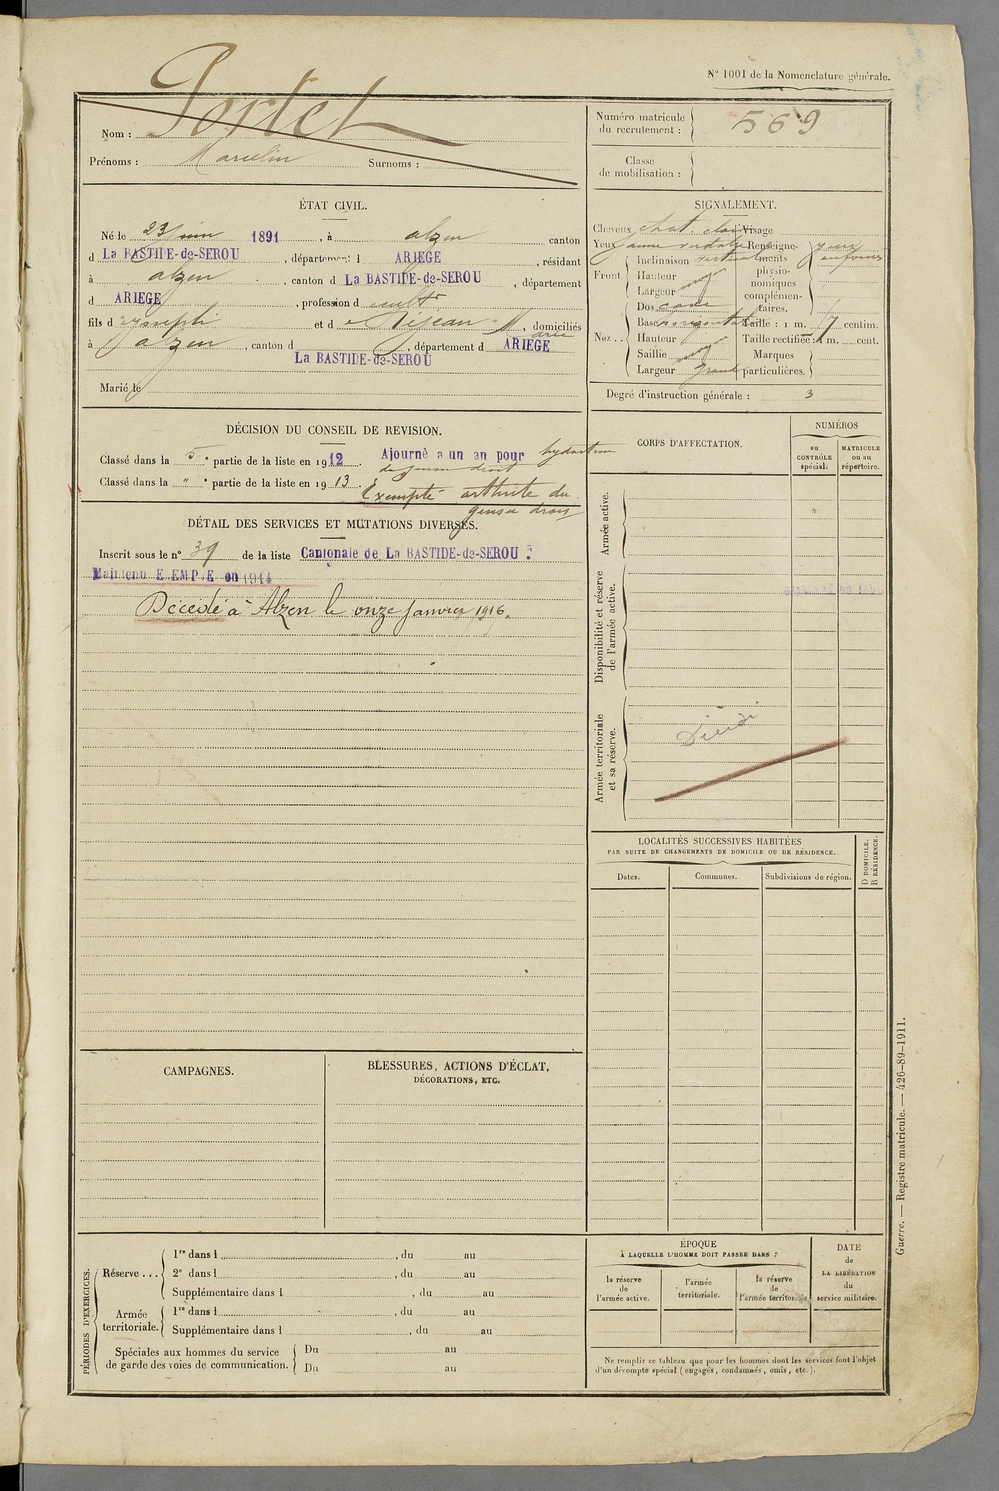 N° 1001 de la Nomenclature générale.
Nom : Portet
Prénoms : Marcelin Surnoms :
Numéro matricule du recrutement : 569
Classe de mobilisation :
ÉTAT CIVIL.
Né le 23 juin 1891, à alzen canton
d La BASTIDE-de-SEROU, département d ARIEGE, résidant
à alzen, canton d La BASTIDE-de-SEROU, département
d ARIEGE, profession d cultr
fils d Joseph et d Réjean M arie, domiciliés
à alzen, canton d La BASTIDE-de-SEROU, département d ARIEGE
Marié le
SIGNALEMENT.
Cheveux chat. clair Visage
Yeux Renseignements physionomiques complémentaires. yeux enfoncés
Front Inclinaison vertical
Hauteur moyen
Largeur
Nez Dos cave
Base horizontale Taille : 1 m. 7 centim.
Hauteur Taille rectifiée : 1 m. cent.
Saillie moyen Marques particulières.
Largeur grand
Degré d'instruction générale : 3
DÉCISION DU CONSEIL DE REVISION.
Classé dans la 5e partie de la liste en 1912. Ajourné à un an pour hydarthrose
du genou droit
Classé dans la " e partie de la liste en 1913. Exempté arthrite du
genou droit
DÉTAIL DES SERVICES ET MUTATIONS DIVERSES.
Inscrit sous le n° 39 de la liste Cantonale de La BASTIDE-de-SEROU
Maintenu EXEMPTE en 1914
Décédé à Alzen le onze janvier 1916.
CORPS D'AFFECTATION.
NUMÉROS
au CONTRÔLE spécial.
MATRICULE ou au répertoire.
Armée active.
Disponibilité et réserve de l'armée active.
Armée territoriale et sa réserve.
LOCALITÉS SUCCESSIVES HABITÉES
PAR SUITE DE CHANGEMENTS DE DOMICILE OU DE RÉSIDENCE.
Dates.
Communes.
Subdivisions de région.
D DOMICILE.
R RÉSIDENCE.
CAMPAGNES.
BLESSURES, ACTIONS D'ÉCLAT,
DÉCORATIONS, ETC.
PÉRIODES D'EXERCICES.
Réserve ... 1re dans l , du au
2e dans l , du au
Supplémentaire dans l , du au
Armée territoriale. 1re dans l , du au
Supplémentaire dans l , du au
Spéciales aux hommes du service de garde des voies de communication. Du au
Du au
ÉPOQUE
À LAQUELLE L'HOMME DOIT PASSER DANS :
la réserve de l'armée active.
l'armée territoriale.
la réserve de l'armée territoriale
DATE de LA LIBÉRATION du service militaire.
Ne remplir ce tableau que pour les hommes dont les services font l'objet
d'un décompte spécial (engagés, condamnés, omis, etc.).
Guerre. — Registre matricule. — 426-89-1911.